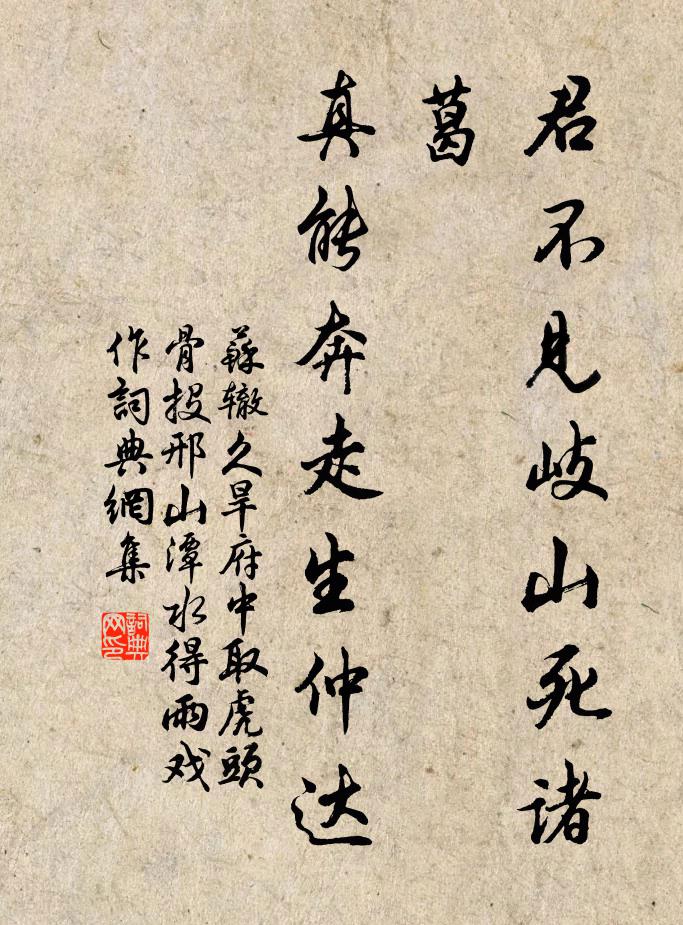 君不见歧山死诸
葛
真能奔走生仲达
蘇辙久旱府中取虎頭
骨投邢山潭水得雨戏
作詞典網集
詞典
网印